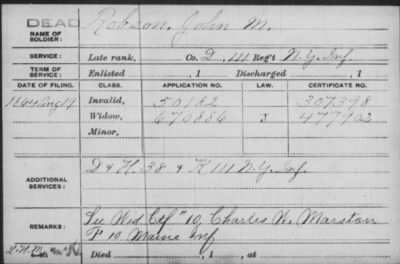 DEAD
NAME OF SOLDIER: Robson, John M.
SERVICE: Late rank, Co. D, 111 Reg't N.Y. Inf.
TERM OF SERVICE: Enlisted , 1 Discharged , 1
DATE OF FILING. CLASS. APPLICATION NO. LAW. CERTIFICATE NO.
1864 Aug 19 Invalid, 50182 307398
Widow, 670886 J 477902
Minor,
ADDITIONAL SERVICES: D & H. 38 & K 111 N.Y. Inf.
REMARKS: See Wid. Ctf "10, Charles W. Marston
F 10 Maine Inf
Died , 1 , at